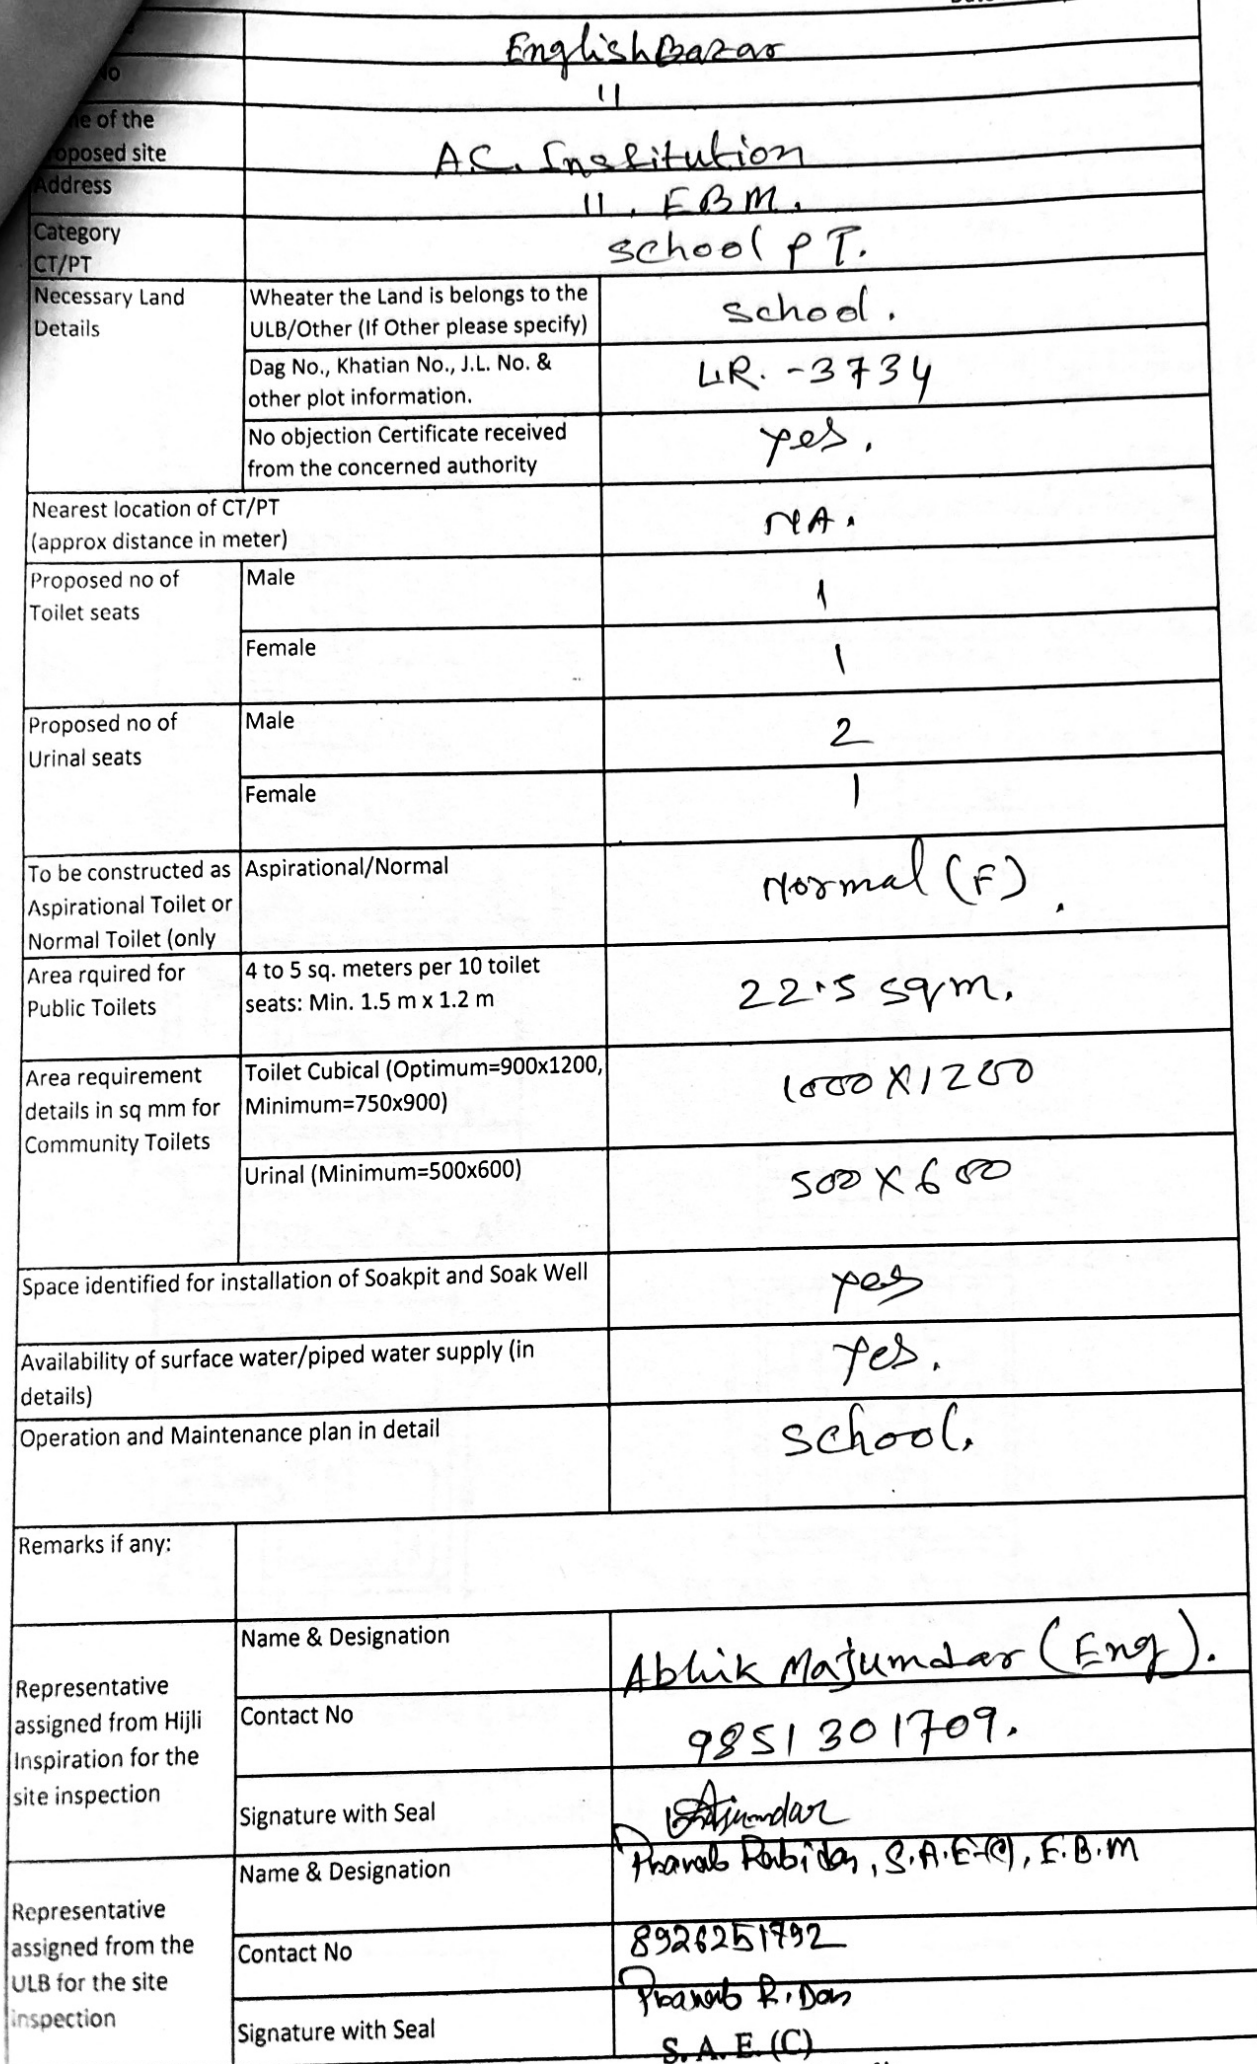 EnglishBazar
No
11
e of the
posed site
A.C. Institution
Address
11, EBM.
Category
CT/PT
School PT.
Necessary Land
Details
Wheater the Land is belongs to the
ULB/Other (If Other please specify)
School.
Dag No., Khatian No., J.L. No. &
other plot information.
LR. -3734
No objection Certificate received
from the concerned authority
Yes.
Nearest location of CT/PT
(approx distance in meter)
NA.
Proposed no of
Toilet seats
Male
1
Female
1
Proposed no of
Urinal seats
Male
2
Female
1
To be constructed as
Aspirational Toilet or
Normal Toilet (only
Aspirational/Normal
Normal (F).
Area rquired for
Public Toilets
4 to 5 sq. meters per 10 toilet
seats: Min. 1.5 m x 1.2 m
22.5 sqm.
Area requirement
details in sq mm for
Community Toilets
Toilet Cubical (Optimum=900x1200,
Minimum=750x900)
1000X1200
Urinal (Minimum=500x600)
500X600
Space identified for installation of Soakpit and Soak Well
Yes
Availability of surface water/piped water supply (in
details)
Yes.
Operation and Maintenance plan in detail
School.
Remarks if any:
Representative
assigned from Hijli
Inspiration for the
site inspection
Name & Designation
Abhik Majumdar (Eng).
Contact No
9851301709.
Signature with Seal
Majumdar
Representative
assigned from the
ULB for the site
inspection
Name & Designation
Pranab Rabidas, S.A.E-(C), E.B.M
Contact No
8926251792
Signature with Seal
Pranab R. Das
S. A. E. (C)